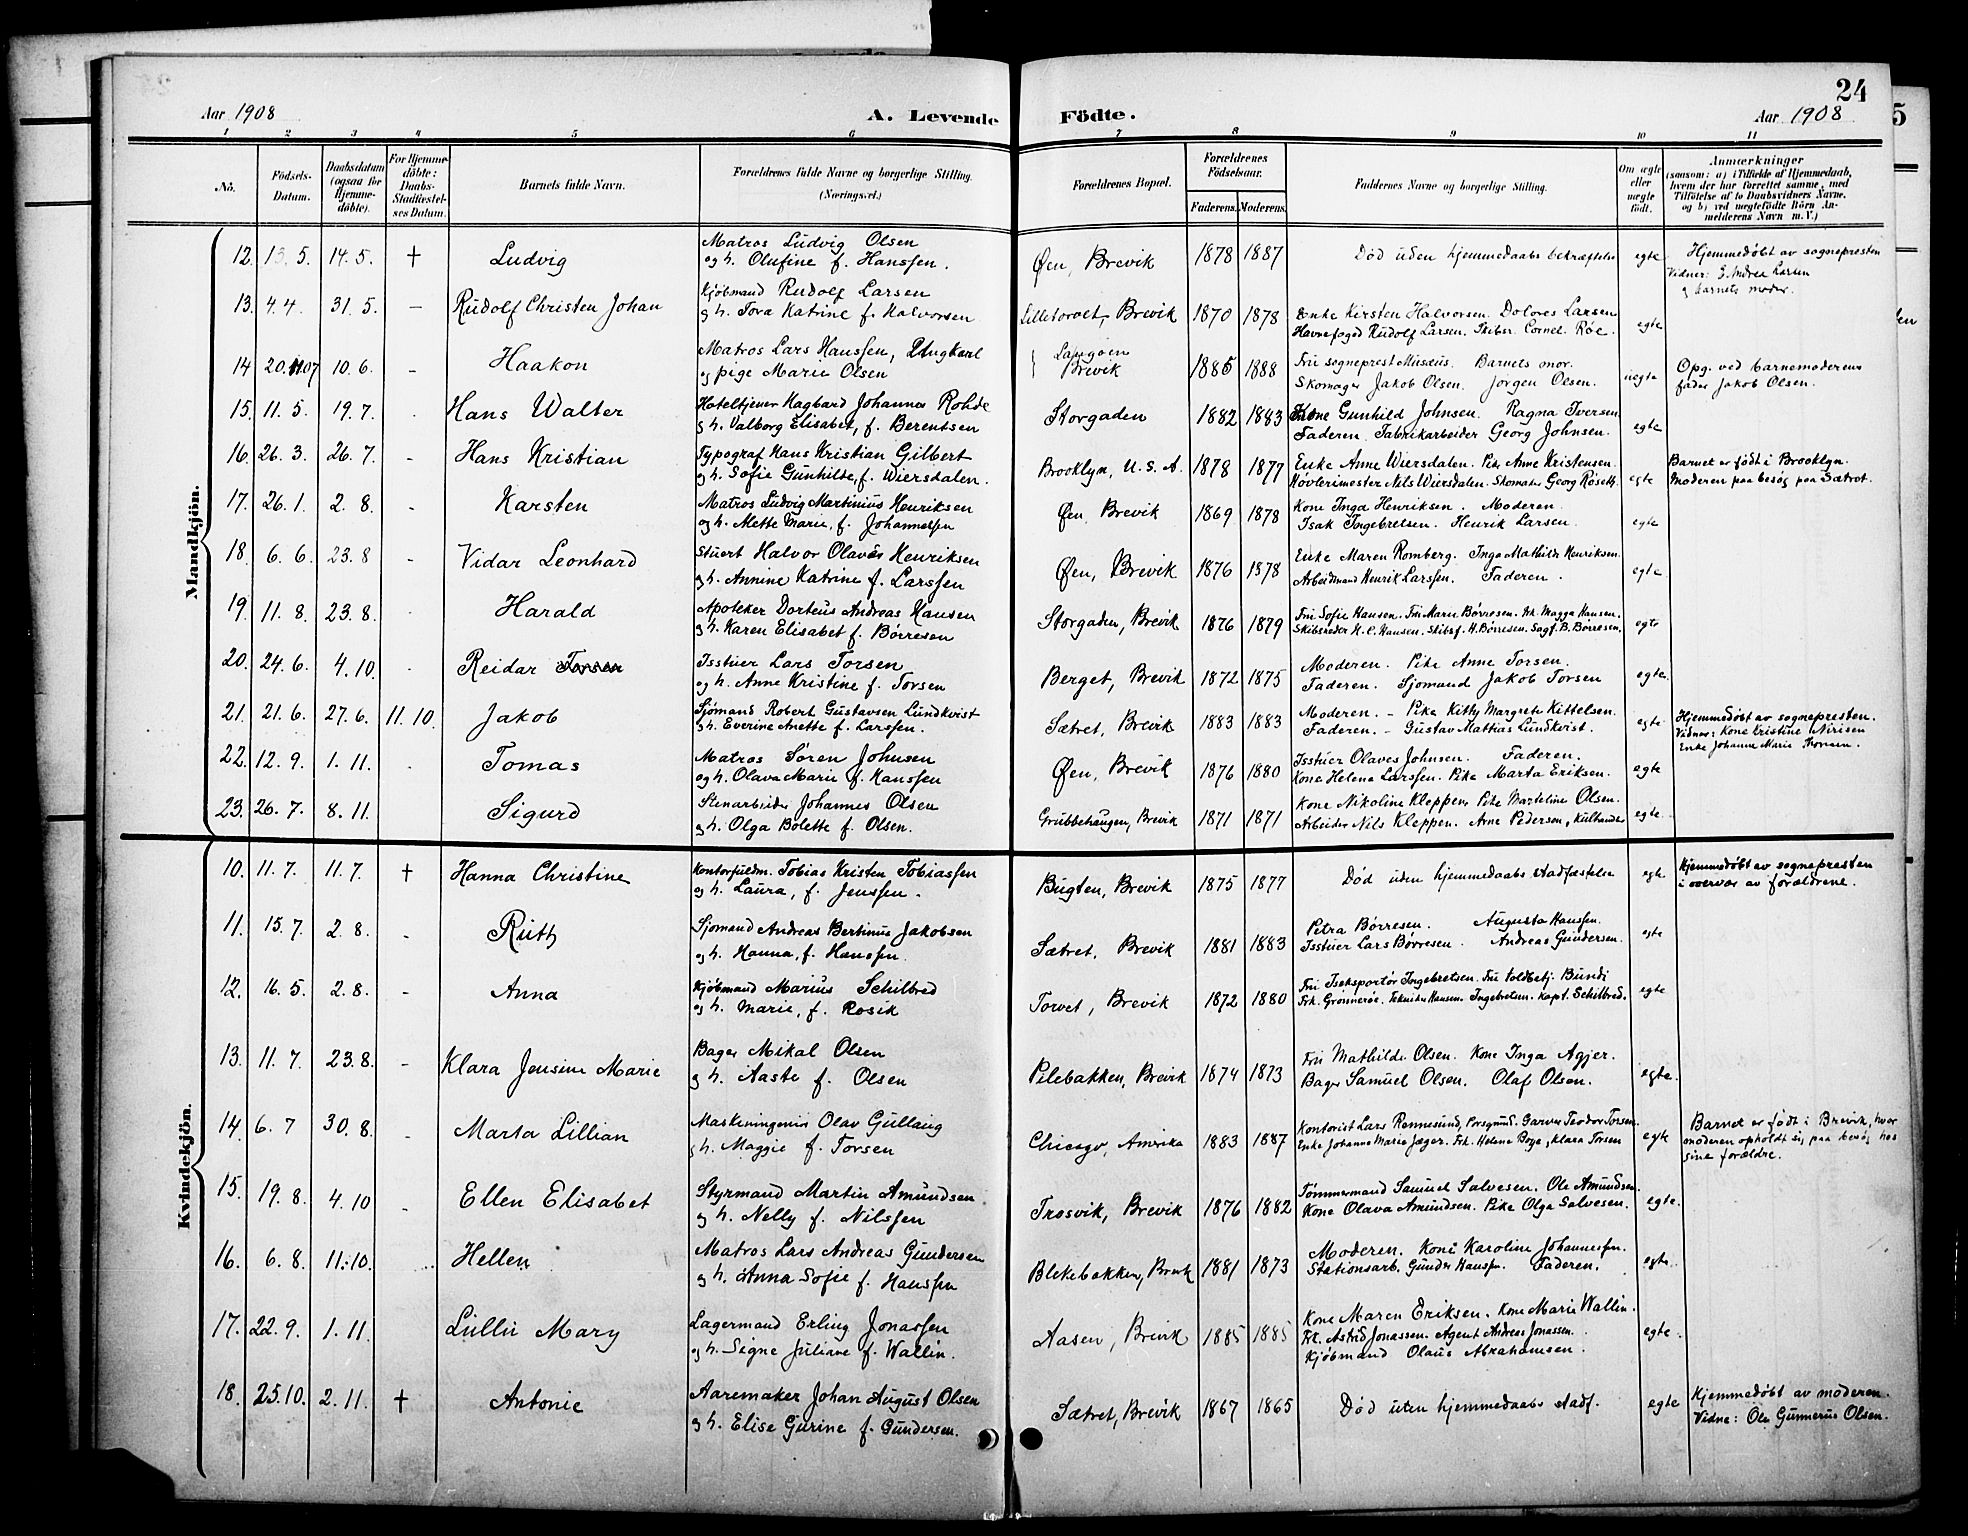 24
Aar 1908 A. Levende Födte. Aar 1908
1 2 3 4 5 6 7 8 9 10 11
No. Födsels-Datum. Daabsdatum (ogsaa for Hjemmedöbte). For Hjemmedöbte: Daabs-Stadfæstelses Datum. Barnets fulde Navn. Forældrenes fulde Navne og borgerlige Stilling. (Næringsvei.) Forældrenes Bopæl. Forældrenes Födselsaar. Faderens. Moderens. Faddernes Navne og borgerlige Stilling. Om ægte eller uægte födt. Anmærkninger (saasom: a) i Tilfælde af Hjemmedaab, hvem der har forrettet samme, med Tilföielse af to Daabsvidners Navne, og b) ved uægtefödte Börn Anmelderens Navn m. V.)
Mandkjön.
12. 13. 5. 14. 5. † Ludvig Matros Ludvig Olsen
og h. Olufine f. Hanssen. Øen, Brevik 1878 1887 Død uden hjemmedaabs bekræftelse egte Hjemmedøbt av sognepresten
Vidner: E. Andrea Larsen
og barnets moder.
13. 4. 4. 31. 5. – Rudolf Christen Johan Kjøbmand Rudolf Larsen
og h. Tora Katrine f. Halvorsen Lilletorvet, Brevik 1870 1878 Enke Kirsten Halvorsen. Dolores Larsen
Havnefoged Rudolf Larsen. Skiber. Cornel. Røe. egte
14 20. 11. 07 10. 6. – Haakon Matros Lars Hanssen, Ungkarl
og pige Marie Olsen Langøen
Brevik 1885 1888 Fru sogneprest Musæus. Barnets mor.
Skomager Jakob Olsen. Jørgen Olsen. uegte Opg. ved barnemoderens
fader Jakob Olsen.
15. 11. 5. 19. 7. Hans Walter Hoteltjener Hagbard Johannes Rohde
og h. Valborg Elisabet, f. Berentsen Storgaden 1882 1883 Kone Gunhild Johnsen. Ragna Iversen
Faderen. Fabrikarbeider Georg Johnsen. egte
16. 26. 3. 26. 7. – Hans Kristian Typograf Hans Kristian Gilbert
og h. Sofie Gunhilde, f. Wiersdalen. Brooklyn, U. S. A. 1878 1877 Enke Anne Wiersdalen. Pike Anne Kristensen.
Høvlerimester Nils Wiersdalen. Skomaker Georg Røseth egte Barnet er født i Brooklyn.
Moderen paa besøg paa Sætret.
17. 26. 1. 2. 8. - Karsten Matros Ludvig Martinius Henriksen
og h. Mette Marie, f. Johannessen Øen, Brevik 1869 1878 Kone Inga Henriksen. Moderen.
Isak Ingebretsen. Henrik Larsen. egte
18. 6. 6. 23. 8 - Vidar Leonhard Stuert Halvor Olaves Henriksen
og h. Annine Katrine f. Larssen Øen, Brevik 1876 1878 Enke Maren Romberg. Inga Mathilde Henriksen.
Arbeidsmand Henrik Larssen. Faderen. egte
19. 11. 8. 23. 8. Harald Apoteker Dorteus Andreas Hansen
og h. Karen Elisabet f. Børresen Storgaden, Brevik 1876 1879 Fru Sofie Hansen. Fru Marie Børresen. Frk. Magga Hansen.
Skibsreder H. C. Hansen. Skibsf. H. Børresen. Sagf. B. Børresen. egte
20. 24. 6. 4. 10. Reidar Torsen Isstuer Lars Torsen
og h. Anne Kristine f. Torsen Berget, Brevik 1872 1875 Moderen. Pike Anne Torsen.
Faderen. Sjømand Jakob Torsen egte.
21. 21. 6. 27. 6. 11. 10. Jakob Sjömand Robert Gustavsen Lundkvist
og h. Everine Anette f. Larssen. Sætret, Brevik 1883 1883 Moderen. – Pike Kitty Margrete Kittelsen.
Faderen. – Gustav Mattias Lundkvist. egte Hjemmedøbt av sognepresten.
Vidner: Kone Kristine Nirisen
Enke Johanne Marie
22. 12. 9. 1. 11. Tomas Matros Søren Johnsen
og h. Olava Marie f. Hanssen Øen, Brevik 1876 1880 Isstuer Olaves Johnsen. Faderen.
Kone Helene Larssen. Pike Marta Eriksen. egte
23. 26. 7. 8. 11. Sigurd Stenarbeider Johannes Olsen
og h. Olga Bolette f. Olsen. Grubbehaugen, Brevik 1871 1871 Kone Nikoline Kleppen. Pike Marteline Olsen.
Arbeider Nils Kleppen. Arne Pedersen, Kulhandler egte
Kvindekjön.
10. 11. 7. 11. 7. † Hanna Christine Kontorfuldm. Tobias Kristen Tobiassen
og h. Laura, f. Jenssen. Bugten, Brevik 1875 1877 Død uden hjemmedaabs stadfæstelse egte Hjemmedøbt av sognepresten
i overvær av forældrene.
11. 15. 7. 2. 8. - Ruth Sjømand Andreas Bertinus Jakobsen
og h. Hanna, f. Hanssen. Sætret, Brevik 1881 1883 Petra Børresen. Augusta Hanssen.
Isstuer Lars Børresen. Andreas Gundersen. egte
12. 16. 5. 2. 8. – Anna Kjøbmand Marius Schilbred
og h. Marie, f. Rosik Torvet, Brevik 1872 1880 Fru Iseksportør Ingebretsen. Fru Toldbetj. Bundi
Frk. Grønnerøe. Tekniker Hansen. Ingebretsen. Kapt. Schilbred. egte
13. 11. 7. 23. 8. – Klara Jensine Marie Bager Mikal Olsen
og h. Aaste f. Olsen Pilebakken, Brevik 1874 1873 Fru Mathilde Olsen. Kone Inga Agjer.
Bager Samuel Olsen. Olaf Olsen. egte.
14. 6. 7 30. 8. - Marta Lillian Maskiningeniør Olav Gullaug
og h. Maggie f. Torsen Chicago, Amerika 1883 1887 Kontorist Lars Rennesund, Porsgrund. Garver Teodor Torsen
Enke Johanne Marie Jæger. Frk. Helene Boye, Klara Torsen egte Barnet er født i Brevik, hvor
moderen opholdt sig paa besøg hos
sine forældre.
15. 19. 8. 4. 10 - Ellen Elisabet Styrmand Martin Amundsen
og h. Nelly f. Nilssen Trosvik, Brevik 1876 1882 Tømmermand Samuel Salvesen. Ole Amundsen.
Kone Olava Amundsen. Pike Olga Salvesen. egte.
16. 6. 8. 11. 10. Hellen Matros Lars Andreas Gundersen
og h. Anna Sofie f. Hanssen Blekebakken, Brevik 1881 1873 Moderen. Kone Karoline Johannessen.
Stationsarb. Gunder Hanssen. Faderen. egte.
17. 22. 9. 1. 11. Lullu Mary Lagermand Erling Jonassen
og h. Signe Juliane f. Wallin. Aasen, Brevik 1885 1885 Kone Maren Eriksen. Kone Marie Wallin.
Frk. Astrid Jonassen. Agent Andreas Jonassen.
Kjøbmand Olaus Abrahamsen. egte.
18. 25. 10. 2. 11. † Antonie Aaremaker Johan August Olsen
og h. Elise Gurine f. Gundersen. Sætret, Brevik 1867 1865 Død uten hjemmedaabs stadf. egte Hjemmedøbt av moderen.
Vidne: Ole Gunnerus Olsen.